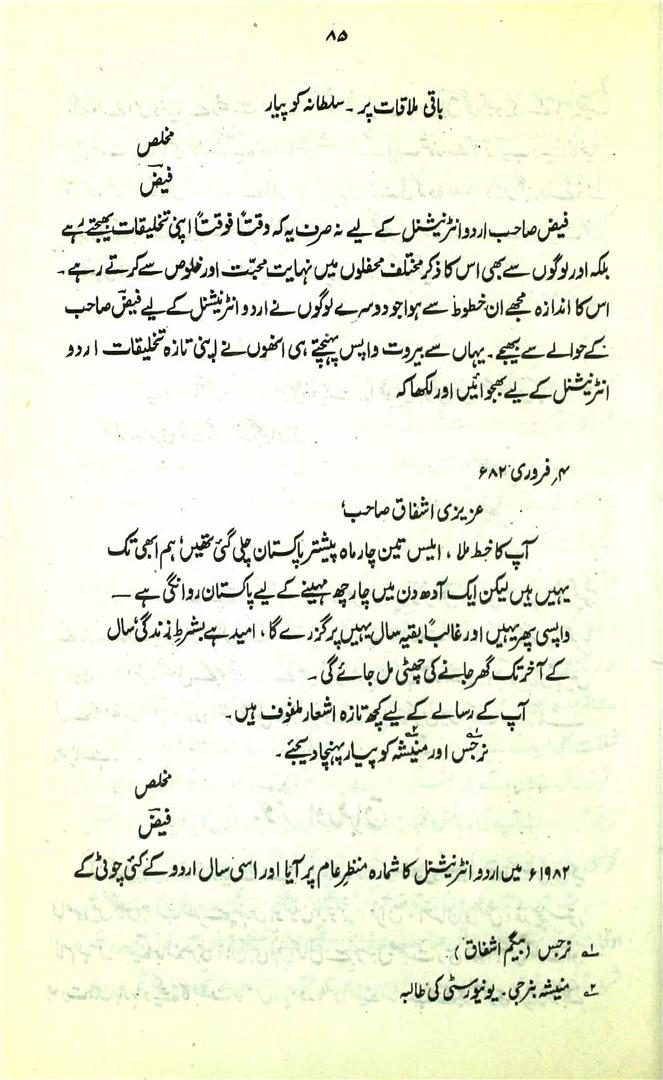 ۸۵
باقی ملاقات پر۔ سلطانہ کو پیار
مخلص
فیضؔ
فیض صاحب اردو انٹرنیشنل کے لیے نہ صرف یہ کہ وقتاً فوقتاً اپنی تخلیقات بھیجتے رہے
بلکہ اور لوگوں سے بھی اس کا ذکر مختلف محفلوں میں نہایت محبّت اور خلوص سے کرتے رہے۔
اس کا اندازہ مجھے ان خطوط سے ہوا جو دوسرے لوگوں نے اردو انٹرنیشنل کے لیے فیضؔ صاحب
کے حوالے سے بھیجے۔ یہاں سے بیروت واپس پہنچتے ہی انھوں نے اپنی تازہ تخلیقات اردو
انٹرنیشنل کے لیے بھجوائیں اور لکھا کہ
۴؍ فروری ۸۲ء
عزیزی اشفاق صاحب،
آپ کا خط ملا، ایلس تین چار ماہ پیشتر پاکستان چلی گئی تھیں، ہم ابھی تک
یہیں ہیں لیکن ایک آدھ دن میں چار چھ مہینے کے لیے پاکستان روانگی ہے —
واپسی پھر یہیں اور غالباً بقیہ سال یہیں پر گزرے گا، امید ہے بشرطِ زندگی، سال
کے آخر تک گھر جانے کی چھٹی مل جائے گی۔
آپ کے رسالے کے لیے کچھ تازہ اشعار ملفوف ہیں۔
نرجس۱ اور منیشہ۲ کو پیار پہنچا دیجئے۔
مخلص
فیضؔ
۱۹۸۲ء میں اردو انٹرنیشنل کا شمارہ منظرِ عام پر آیا اور اسی سال اردو کے کئی چوٹی کے
۱؂ نرجس (بیگم اشفاق)۔
۲؂ منیشہ بنرجی۔ یونیورسٹی کی طالبہ